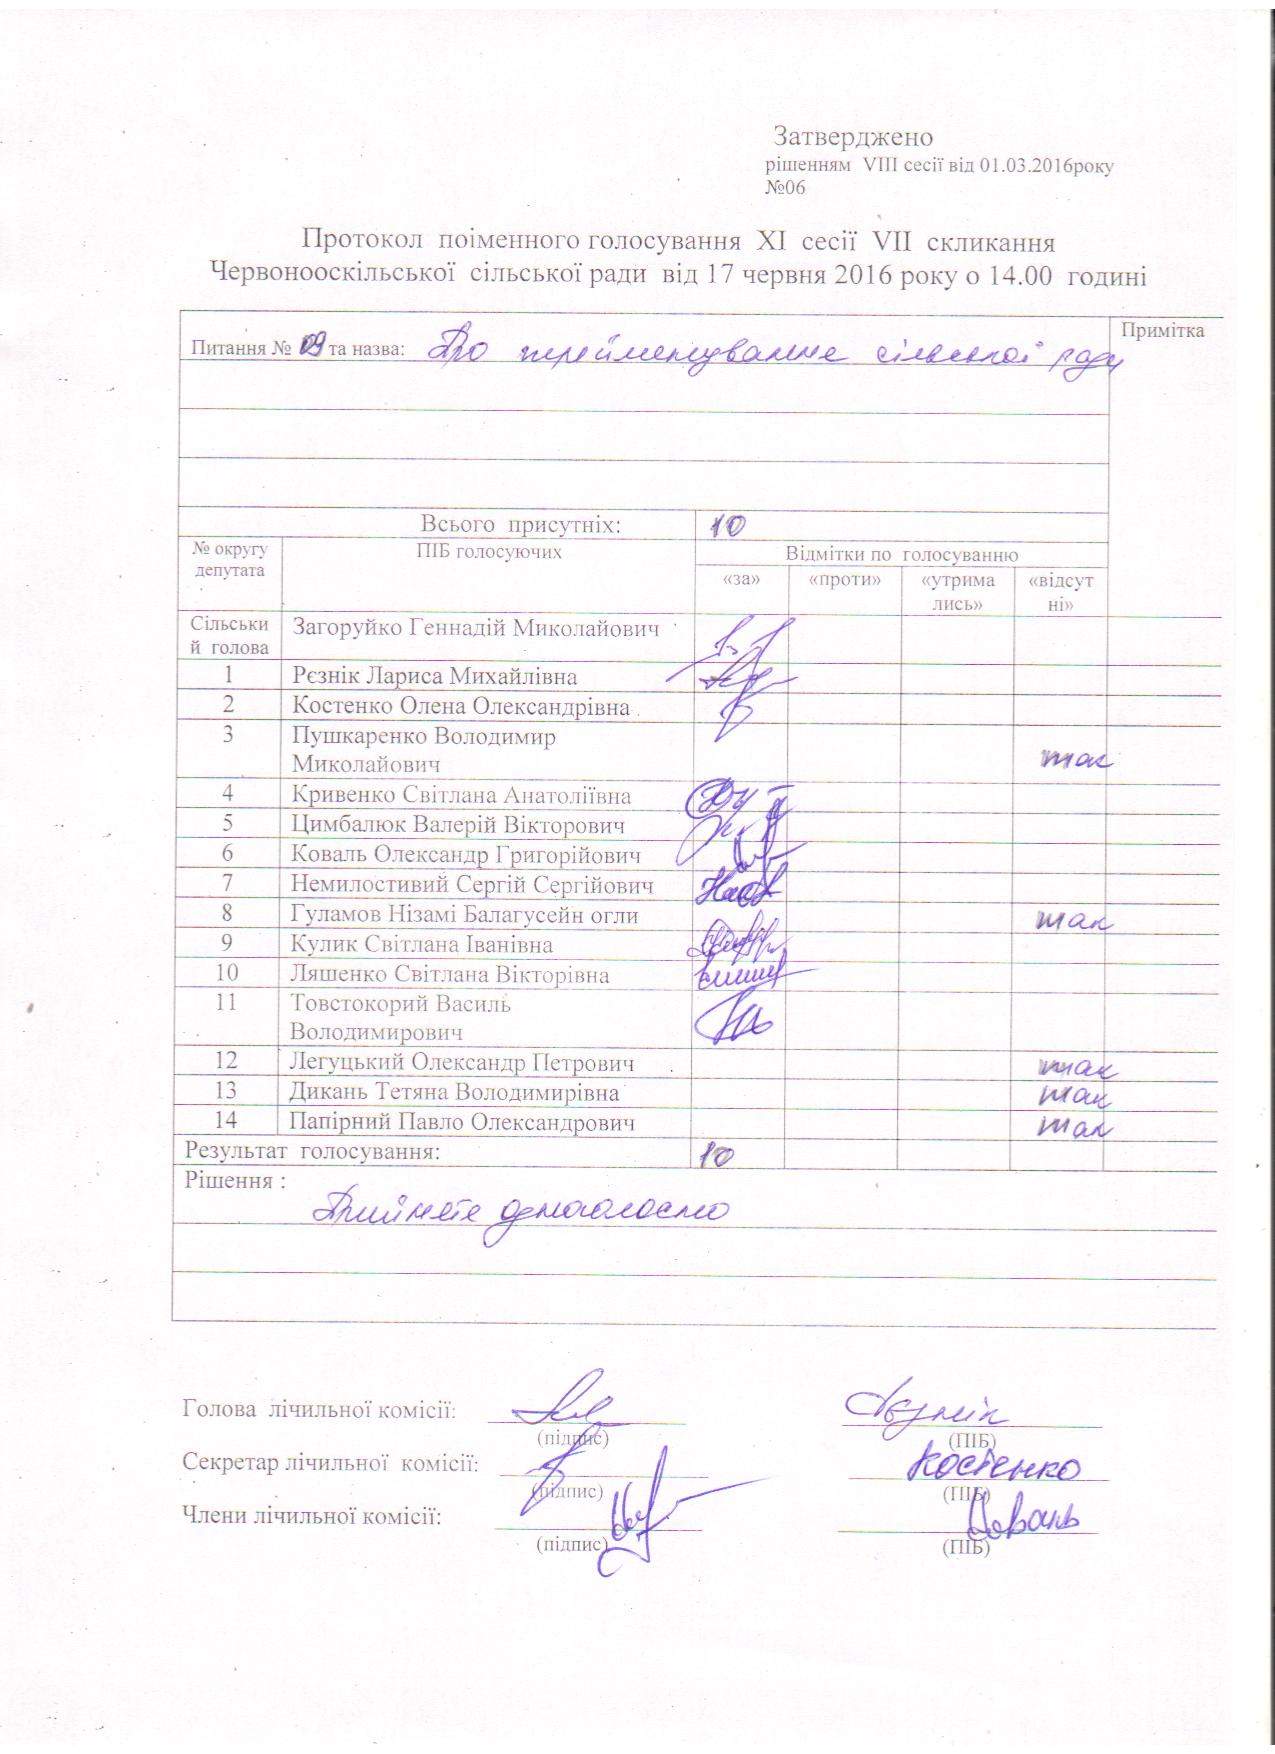 Затверджено
рішенням VIII сесії від 01.03.2016року
№06
Протокол поіменного голосування XI сесії VII скликання
Червонооскільської сільської ради від 17 червня 2016 року о 14.00 годині
Питання № 09 та назва: Про перейменування сільської ради
Примітка
Всього присутніх: 10
№ округу депутата ПІБ голосуючих Відмітки по голосуванню
«за» «проти» «утрима лись» «відсут ні»
Сільськи й голова Загоруйко Геннадій Миколайович
1 Рєзнік Лариса Михайлівна
2 Костенко Олена Олександрівна
3 Пушкаренко Володимир
Миколайович так
4 Кривенко Світлана Анатоліївна
5 Цимбалюк Валерій Вікторович
6 Коваль Олександр Григорійович
7 Немилостивий Сергій Сергійович
8 Гуламов Нізамі Балагусейн огли так
9 Кулик Світлана Іванівна
10 Ляшенко Світлана Вікторівна
11 Товстокорий Василь
Володимирович
12 Легуцький Олександр Петрович так
13 Дикань Тетяна Володимирівна так
14 Папірний Павло Олександрович так
Результат голосування: 10
Рішення :
Прийнято одноголосно
Голова лічильної комісії: Рєзнік
(підпис) (ПІБ)
Секретар лічильної комісії: Костенко
(підпис) (ПІБ)
Члени лічильної комісії: Коваль
(підпис) (ПІБ)